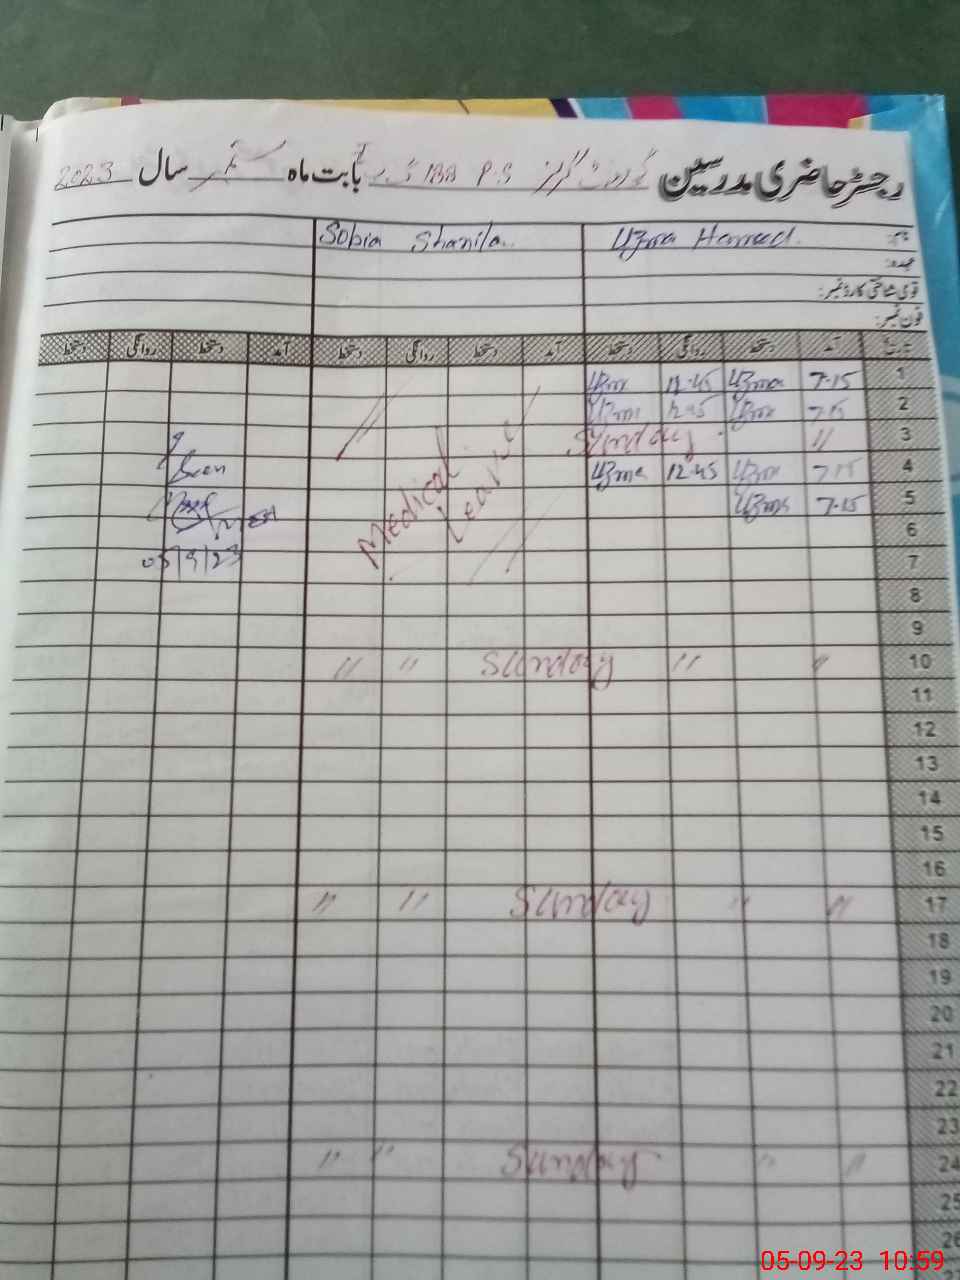 رجسٹر حاضری مدرسین گورنمنٹ گرلز P.S بابت ماہ ستمبر سال 2023
نام: Uzma Hameed. Sobia Shamila.
عہدہ:
قومی شناختی کارڈ نمبر:
فون نمبر:
تاریخ آمد دستخط روانگی دستخط آمد دستخط روانگی دستخط آمد دستخط روانگی دستخط
1 7-15 Uzma 12-45 Uzm
2 7-15 Uzma 12-45 Uzma
3 〃 Sunday
4 7-15 Uzma 12-45 Uzma
5 7-15 Uzma
Medical Leave
Seen
05/9/23
6
7
8
9
10 〃 〃 Sunday 〃 〃
11
12
13
14
15
16
17 〃 〃 Sunday 〃 〃
18
19
20
21
22
23
24 〃 〃 Sunday 〃 〃
25
26
27
05-09-23 10:59